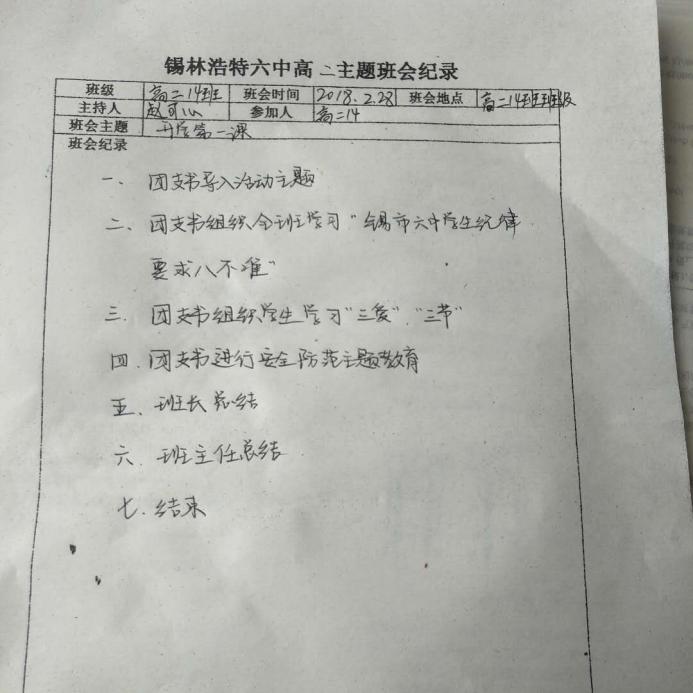 锡林浩特六中高二主题班会纪录
班级 高二14班 班会时间 2018.2.28 班会地点 高二14班班级
主持人 赵可心 参加人 高二14
班会主题 开学第一课
班会纪录
一、团支书导入活动主题
二、团支书组织全班学习"锡市六中学生纪律
要求八不准"
三、团支书组织学生学习"三爱"、"三节"
四.团支书进行安全防范主题教育
五、班长总结
六、班主任总结
七.结束